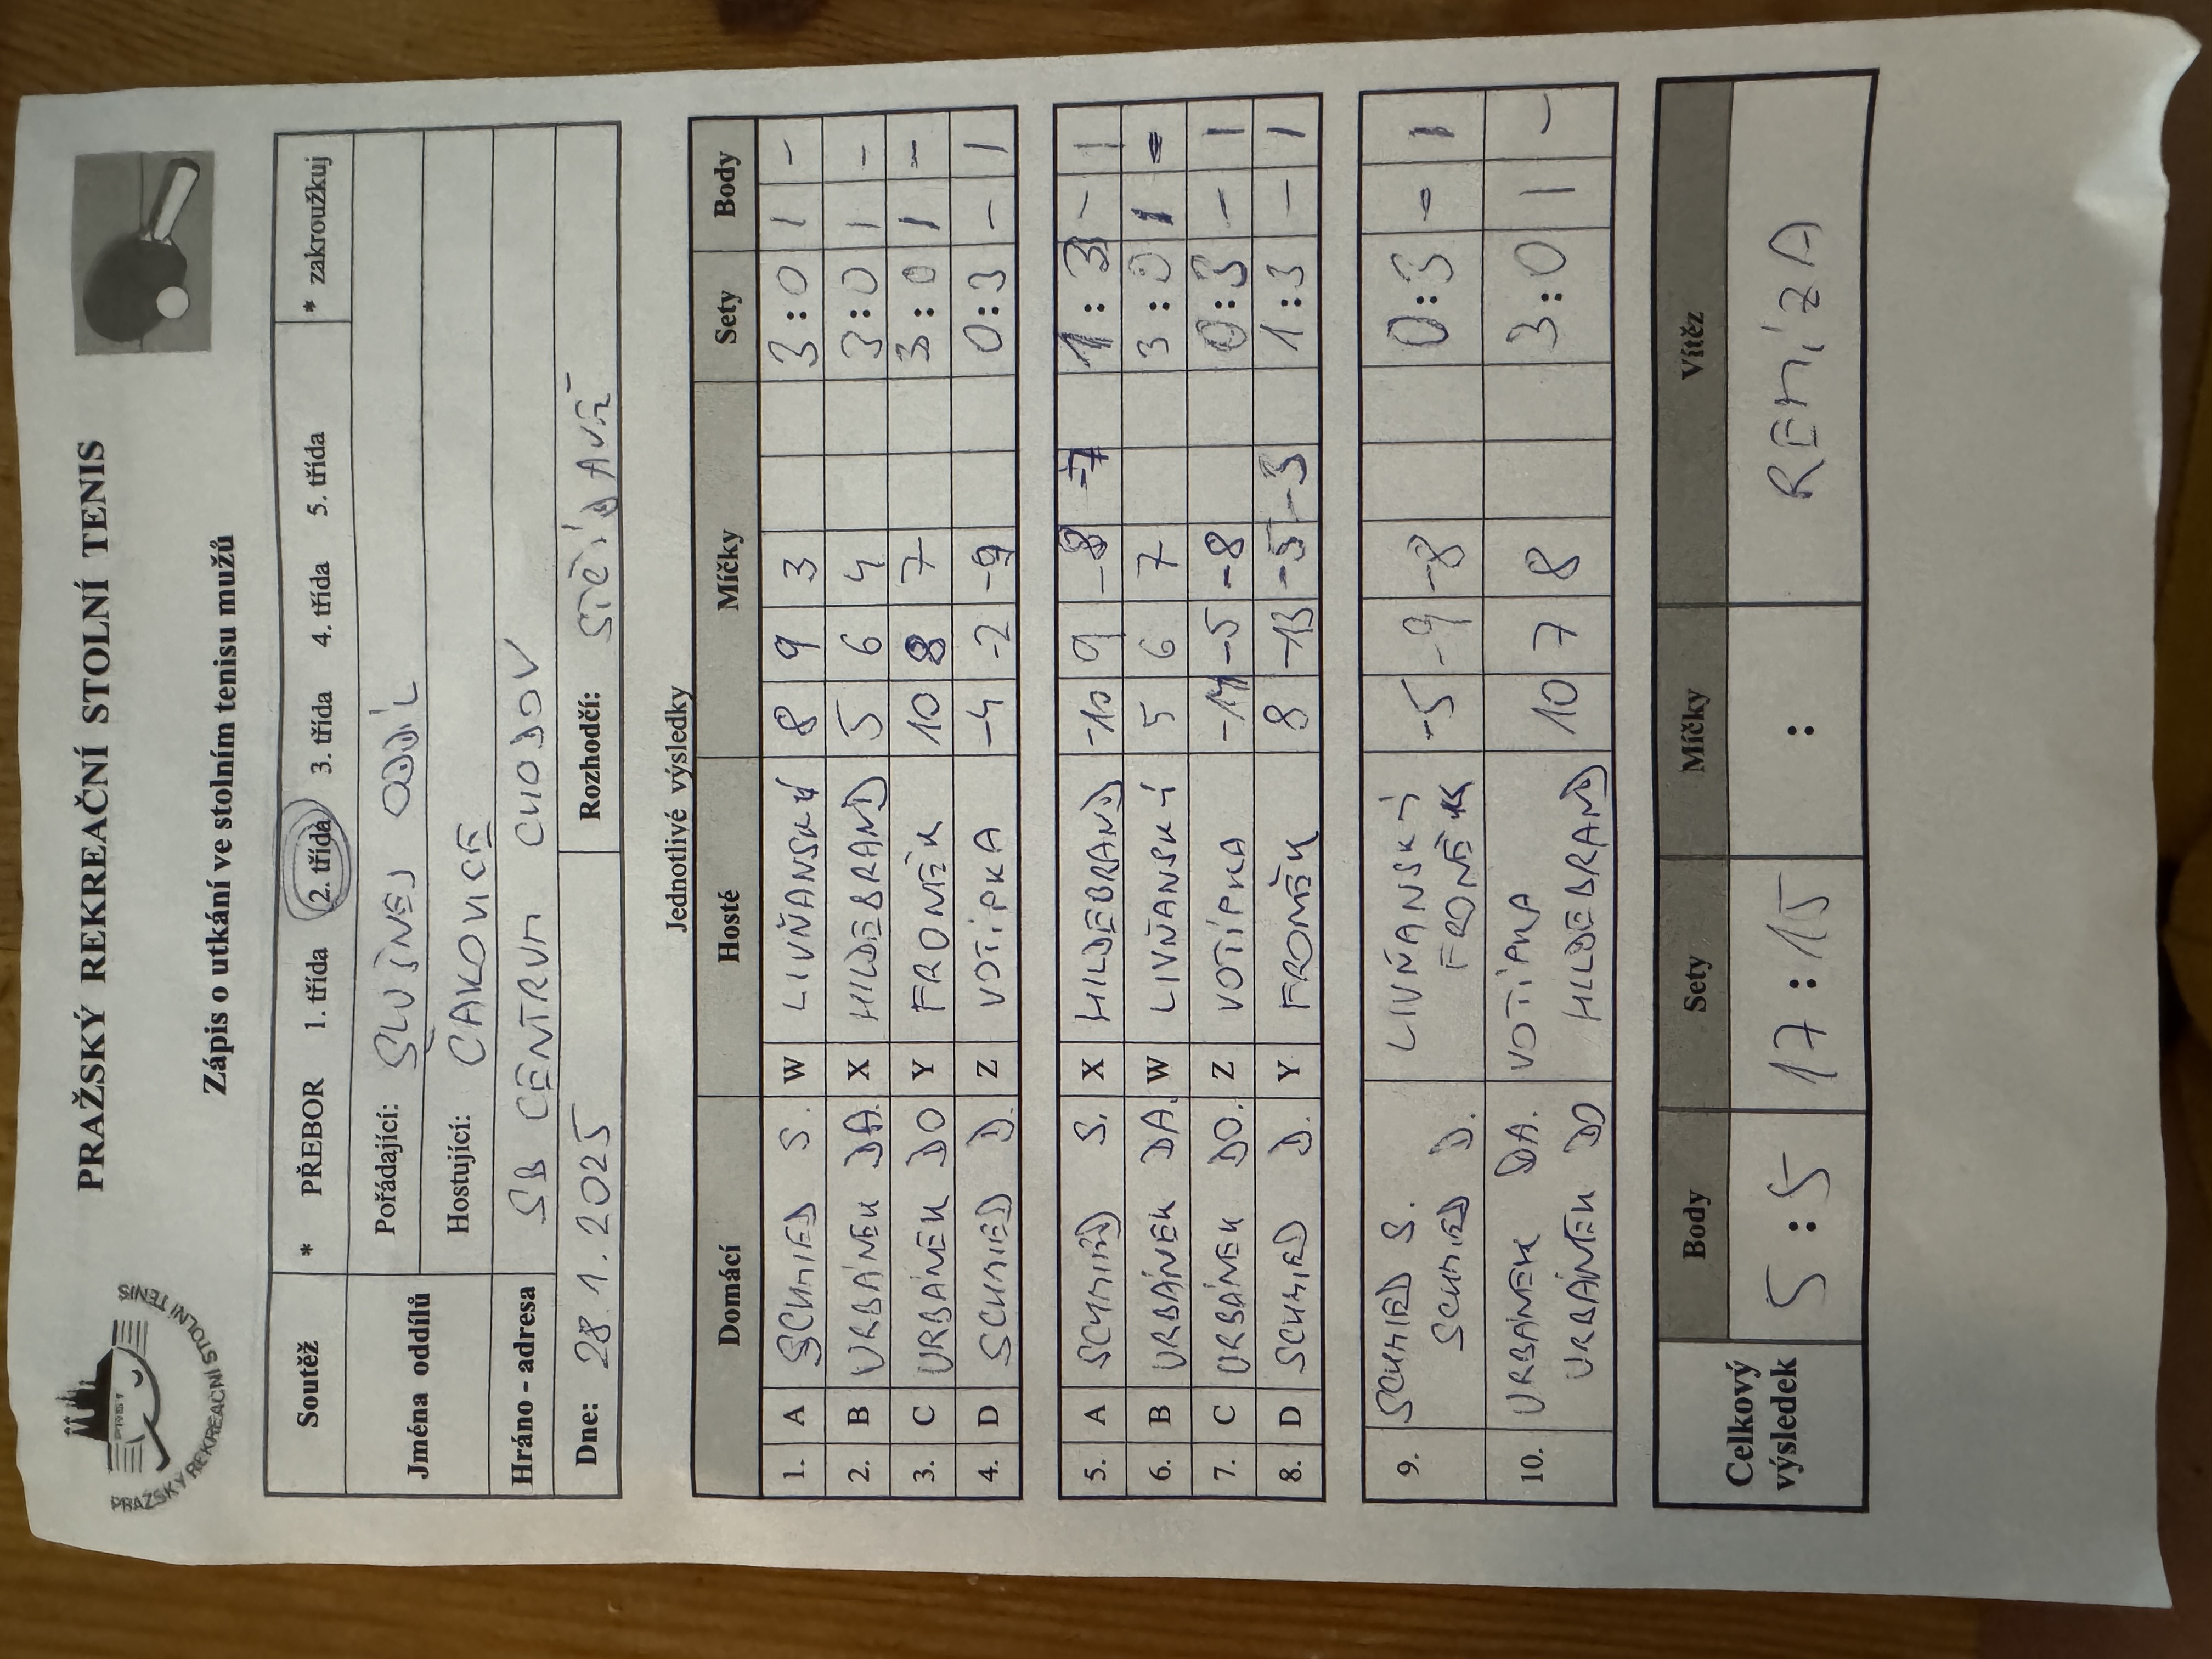 PRAŽSKÝ REKREAČNÍ STOLNÍ TENIS
PRAŽSKÝ REKREAČNÍ STOLNÍ TENIS
Zápis o utkání ve stolním tenisu mužů
Soutěž * PŘEBOR 1. třída 2. třída 3. třída 4. třída 5. třída * zakroužkuj
Jména oddílů
Pořádající: ODDÍL
Hostující: ČAKOVICE
Hráno - adresa SB CENTRUM CHODOV
Dne: 28.1.2025 Rozhodčí: STŘÍDAVĚ
Jednotlivé výsledky
Domácí Hosté Míčky Sety Body
1. A SCHMIED S. W LIVŇANSKÝ 8 9 3 3:0 1 -
2. B URBÁNEK DA. X HILDEBRAND 5 6 4 3:0 1 -
3. C URBÁNEK DO Y FROMĚK 10 8 7 3:0 1 -
4. D SCHMIED D. Z VOTÍPKA -4 -2 -9 0:3 - 1
5. A SCHMIED S. X HILDEBRAND -10 9 -8 -7 1:3 - 1
6. B URBÁNEK DA. W LIVŇANSKÝ 5 6 7 3:0 1 -
7. C URBÁNEK DO. Z VOTÍPKA -14 -5 -8 0:3 - 1
8. D SCHMIED D. Y FROMĚK 8 -13 -5 -3 1:3 - 1
9. SCHMIED S. LIVŇANSKÝ -5 -9 -8 0:3 - 1
SCHMIED D. FROMĚK
10. URBÁNEK DA. VOTÍPKA 10 7 8 3:0 1 -
URBÁNEK DO HILDEBRAND
Celkový výsledek
Body Sety Míčky Vítěz
5:5 17:15 : REMÍZA